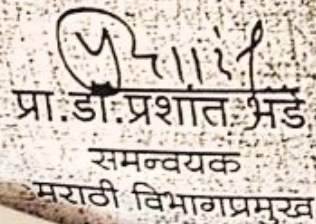 प्रा.डॉ.प्रशांत भडे
समन्वयक
मराठी विभागप्रमुख